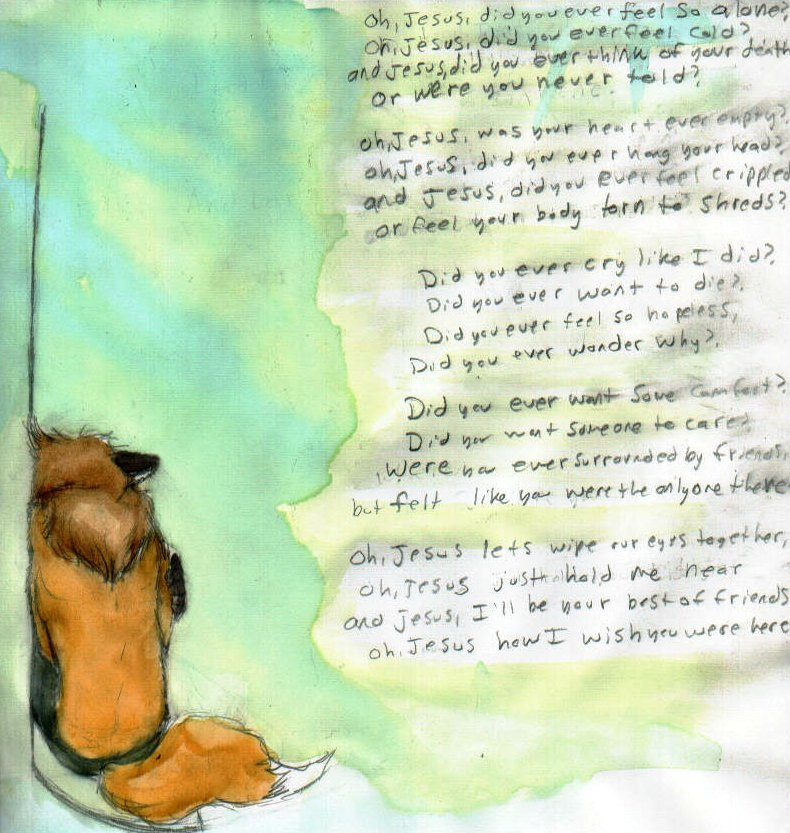 Oh, Jesus, did you ever feel so alone?
Oh, Jesus, did you ever feel cold?
and Jesus, did you ever think of your death
or were you never told?
oh, Jesus, was your heart ever empty?
oh, Jesus, did you ever hang your head?
and Jesus, did you ever feel crippled
or feel your body torn to shreds?
Did you ever cry like I did?
Did you ever want to die?
Did you ever feel so hopeless,
Did you ever wonder why?
Did you ever want some comfort?
Did you want someone to care?
Were you ever surrounded by friends,
but felt like you were the only one there
Oh, Jesus lets wipe our eyes together,
oh, Jesus just hold me near
and Jesus, I'll be your best of friends
oh, Jesus how I wish you were here